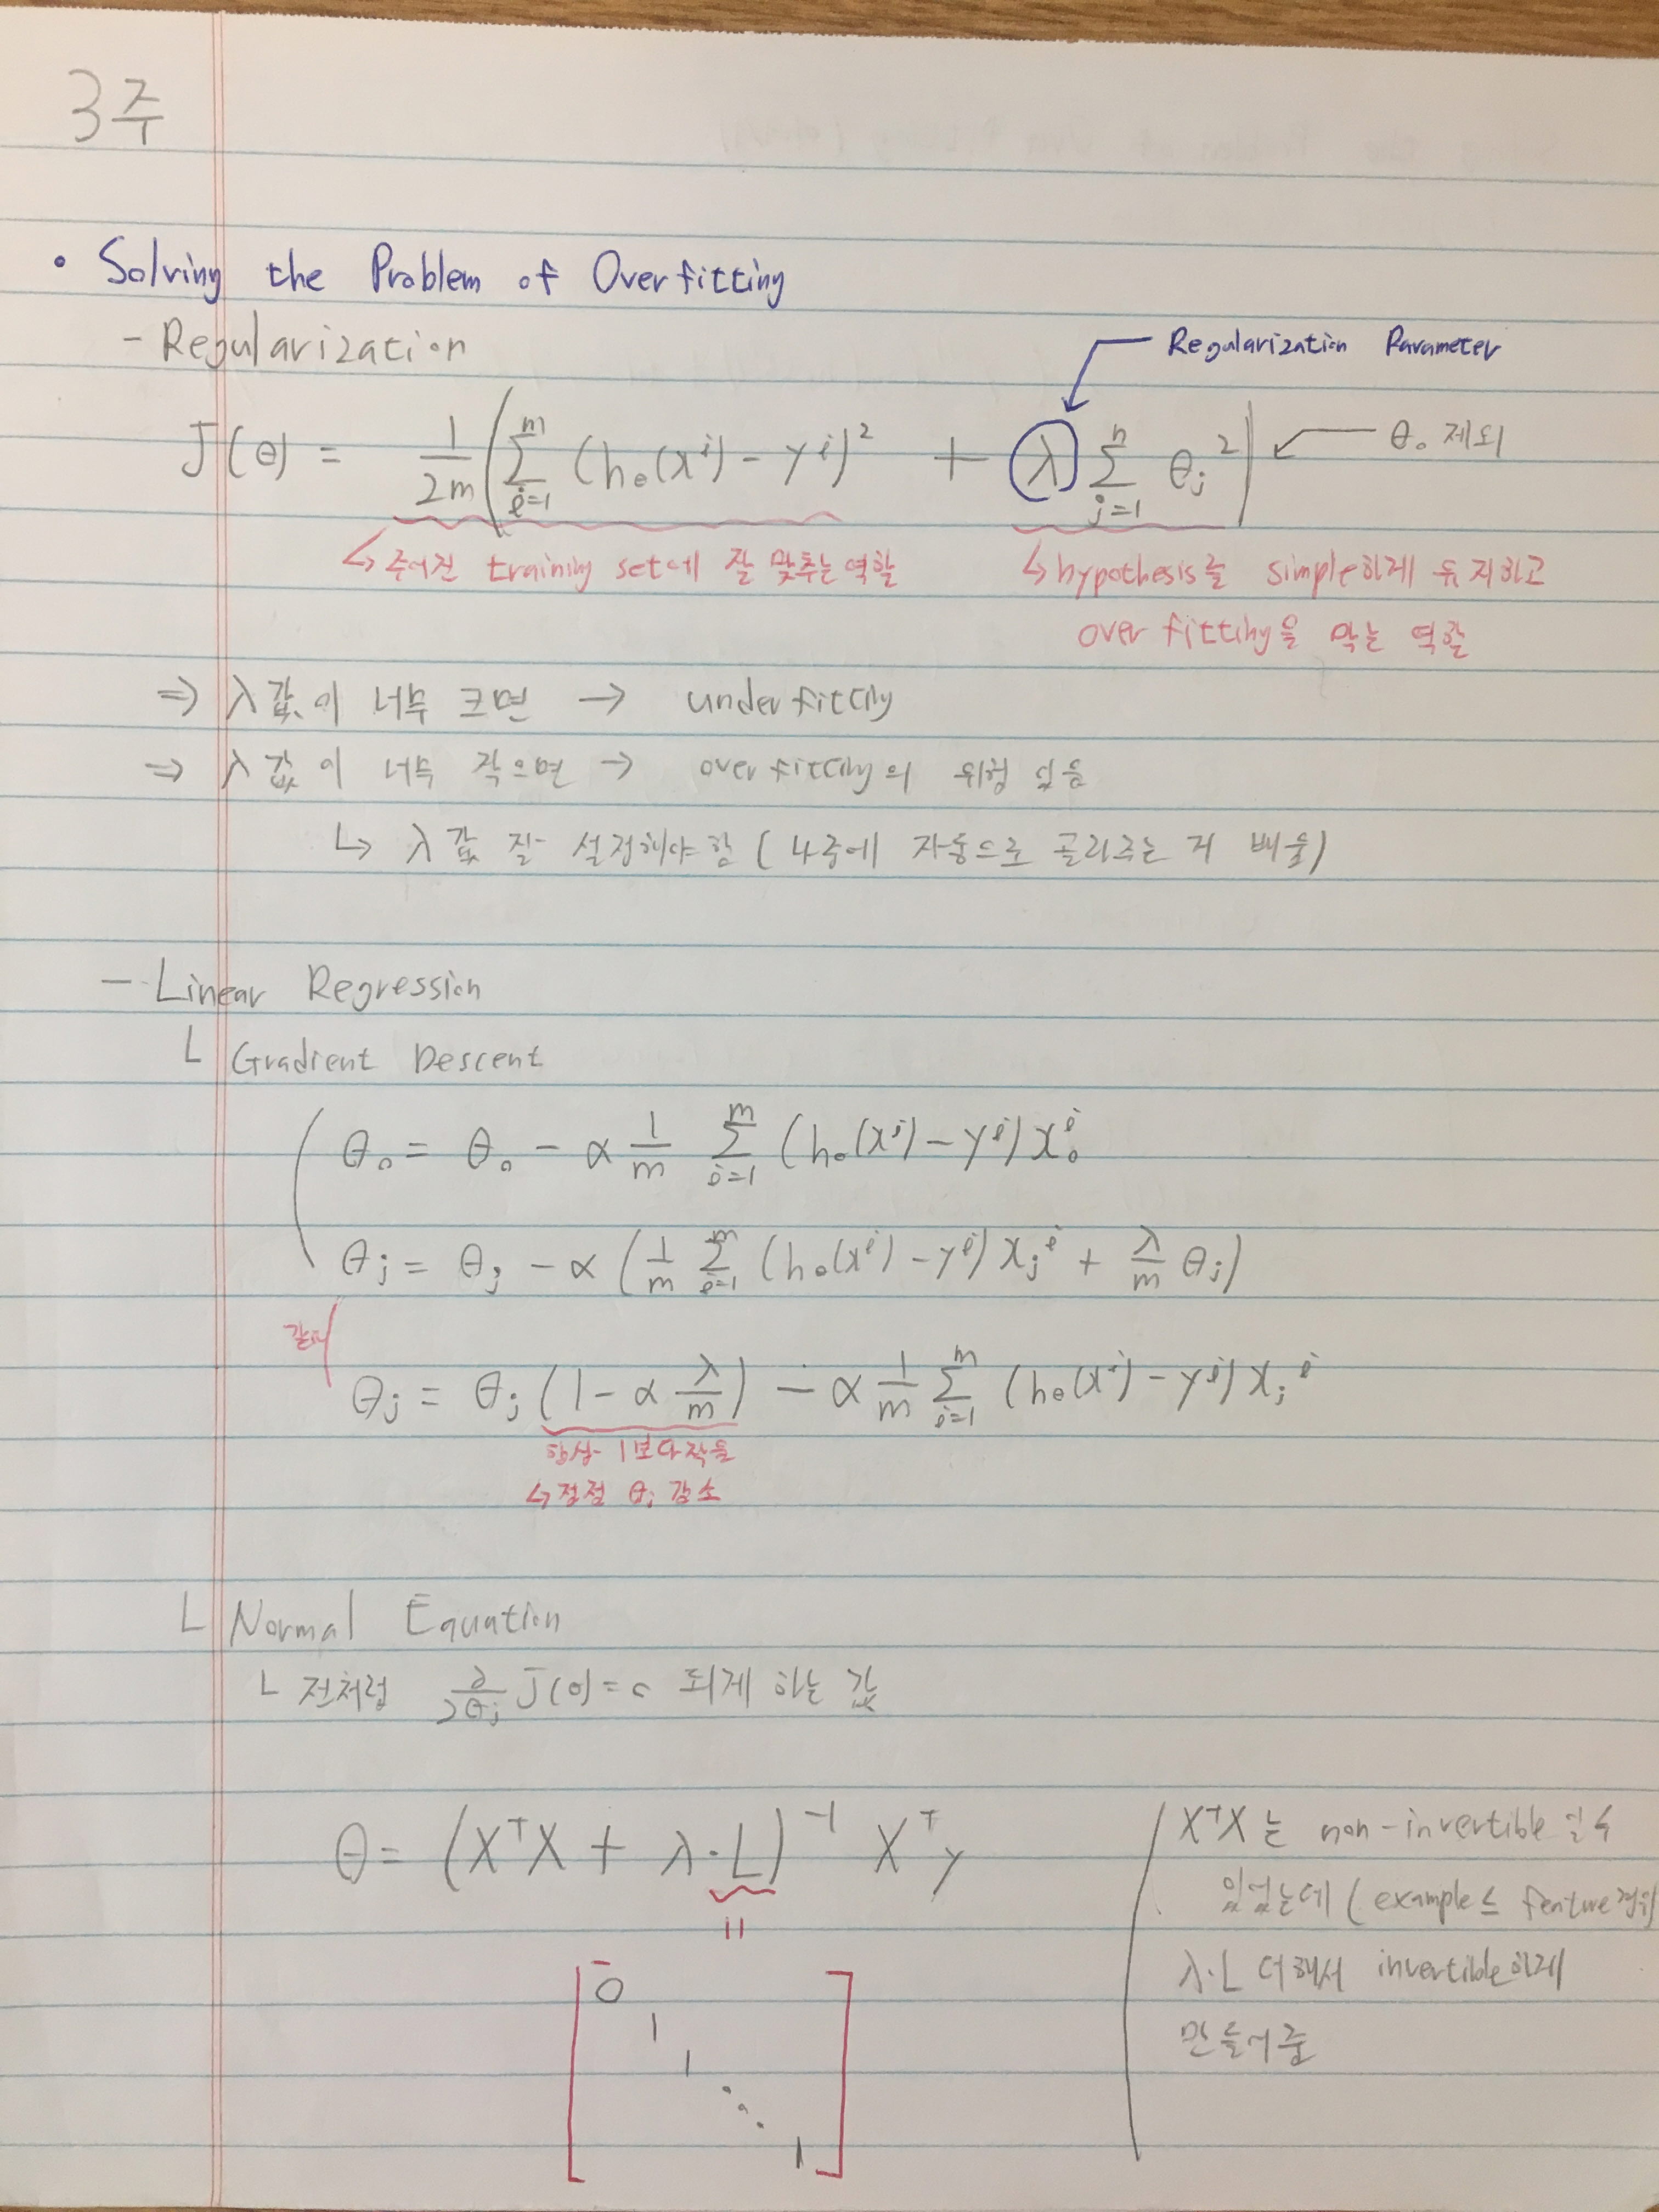 3주
• Solving the Problem of Overfitting
- Regularization
Regularization Parameter
J(θ) = 1/2m ( Σ_{i=1}^{m} (h_θ(x^i) - y^i)² + λ Σ_{j=1}^{n} θ_j² ) ← θ₀ 제외
↳ 주어진 training set에 잘 맞추는 역할 ↳ hypothesis를 simple하게 유지하고
overfitting을 막는 역할
⇒ λ 값이 너무 크면 → underfitting
⇒ λ 값이 너무 작으면 → overfitting의 위험 있음
↳ λ 값 잘 설정해야함 (4주에 자동으로 골라주는 거 배움)
- Linear Regression
└ Gradient Descent
θ₀ = θ₀ - α 1/m Σ_{i=1}^{m} (h_θ(x^i) - y^i) x₀^i
θ_j = θ_j - α ( 1/m Σ_{i=1}^{m} (h_θ(x^i) - y^i) x_j^i + λ/m θ_j )
같다
θ_j = θ_j (1 - α λ/m) - α 1/m Σ_{i=1}^{m} (h_θ(x^i) - y^i) x_j^i
항상 1보다 작음
↳ 점점 θ_j 감소
└ Normal Equation
└ 전처럼 ∂/∂θ_j J(θ) = 0 되게 하는 값
θ = (XᵀX + λ·L)⁻¹ Xᵀy
XᵀX는 non-invertible일 수
있었는데 (example ≤ feature 경우)
λ·L 더해서 invertible하게
만들어줌
=
0
1
1
⋱
1